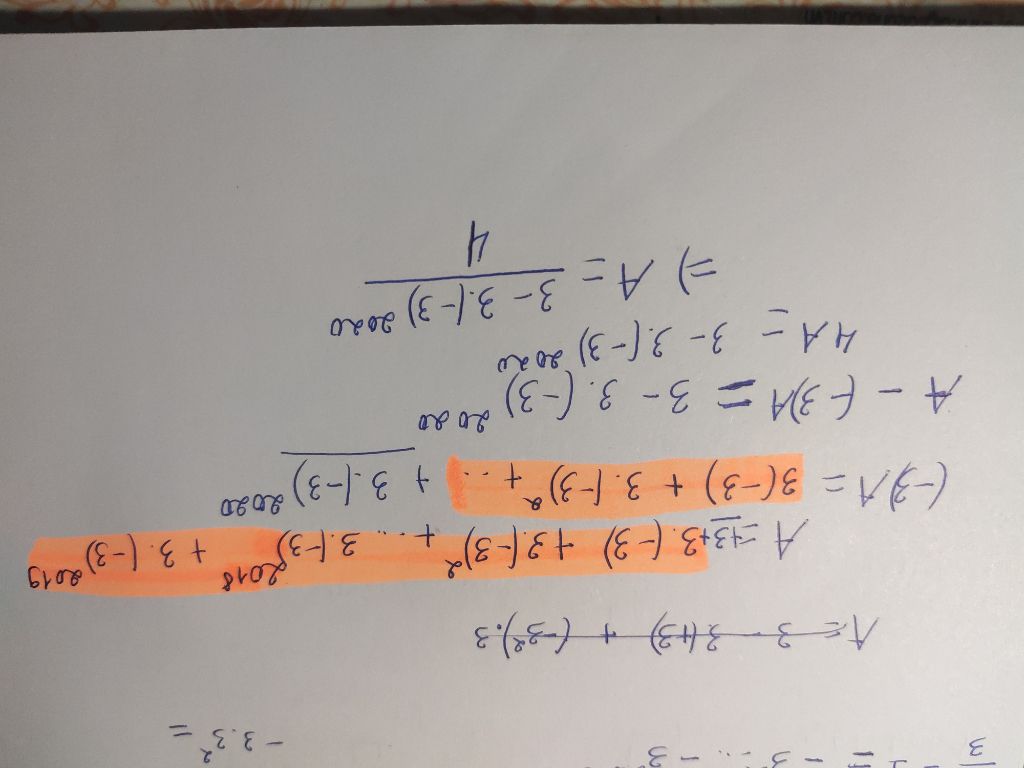 - 3.3² =
A = 3 - 3(+3) + (-3²).3
A = +3 + 3.(-3) + 3.(-3)² + ... 3.(-3)²⁰¹⁸ + 3.(-3)²⁰¹⁹
(-3)A = 3(-3) + 3.(-3)² + ... + 3.(-3)²⁰²⁰
A - (-3)A = 3 - 3.(-3)²⁰²⁰
4A = 3 - 3.(-3)²⁰²⁰
=) A = 3 - 3.(-3)²⁰²⁰
4